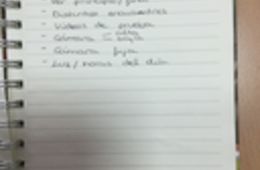 - Ver principio/final
- Distintos encuadres
- Vídeos de prueba
- Cámara
- Cámara fija
- Luz/horas del día